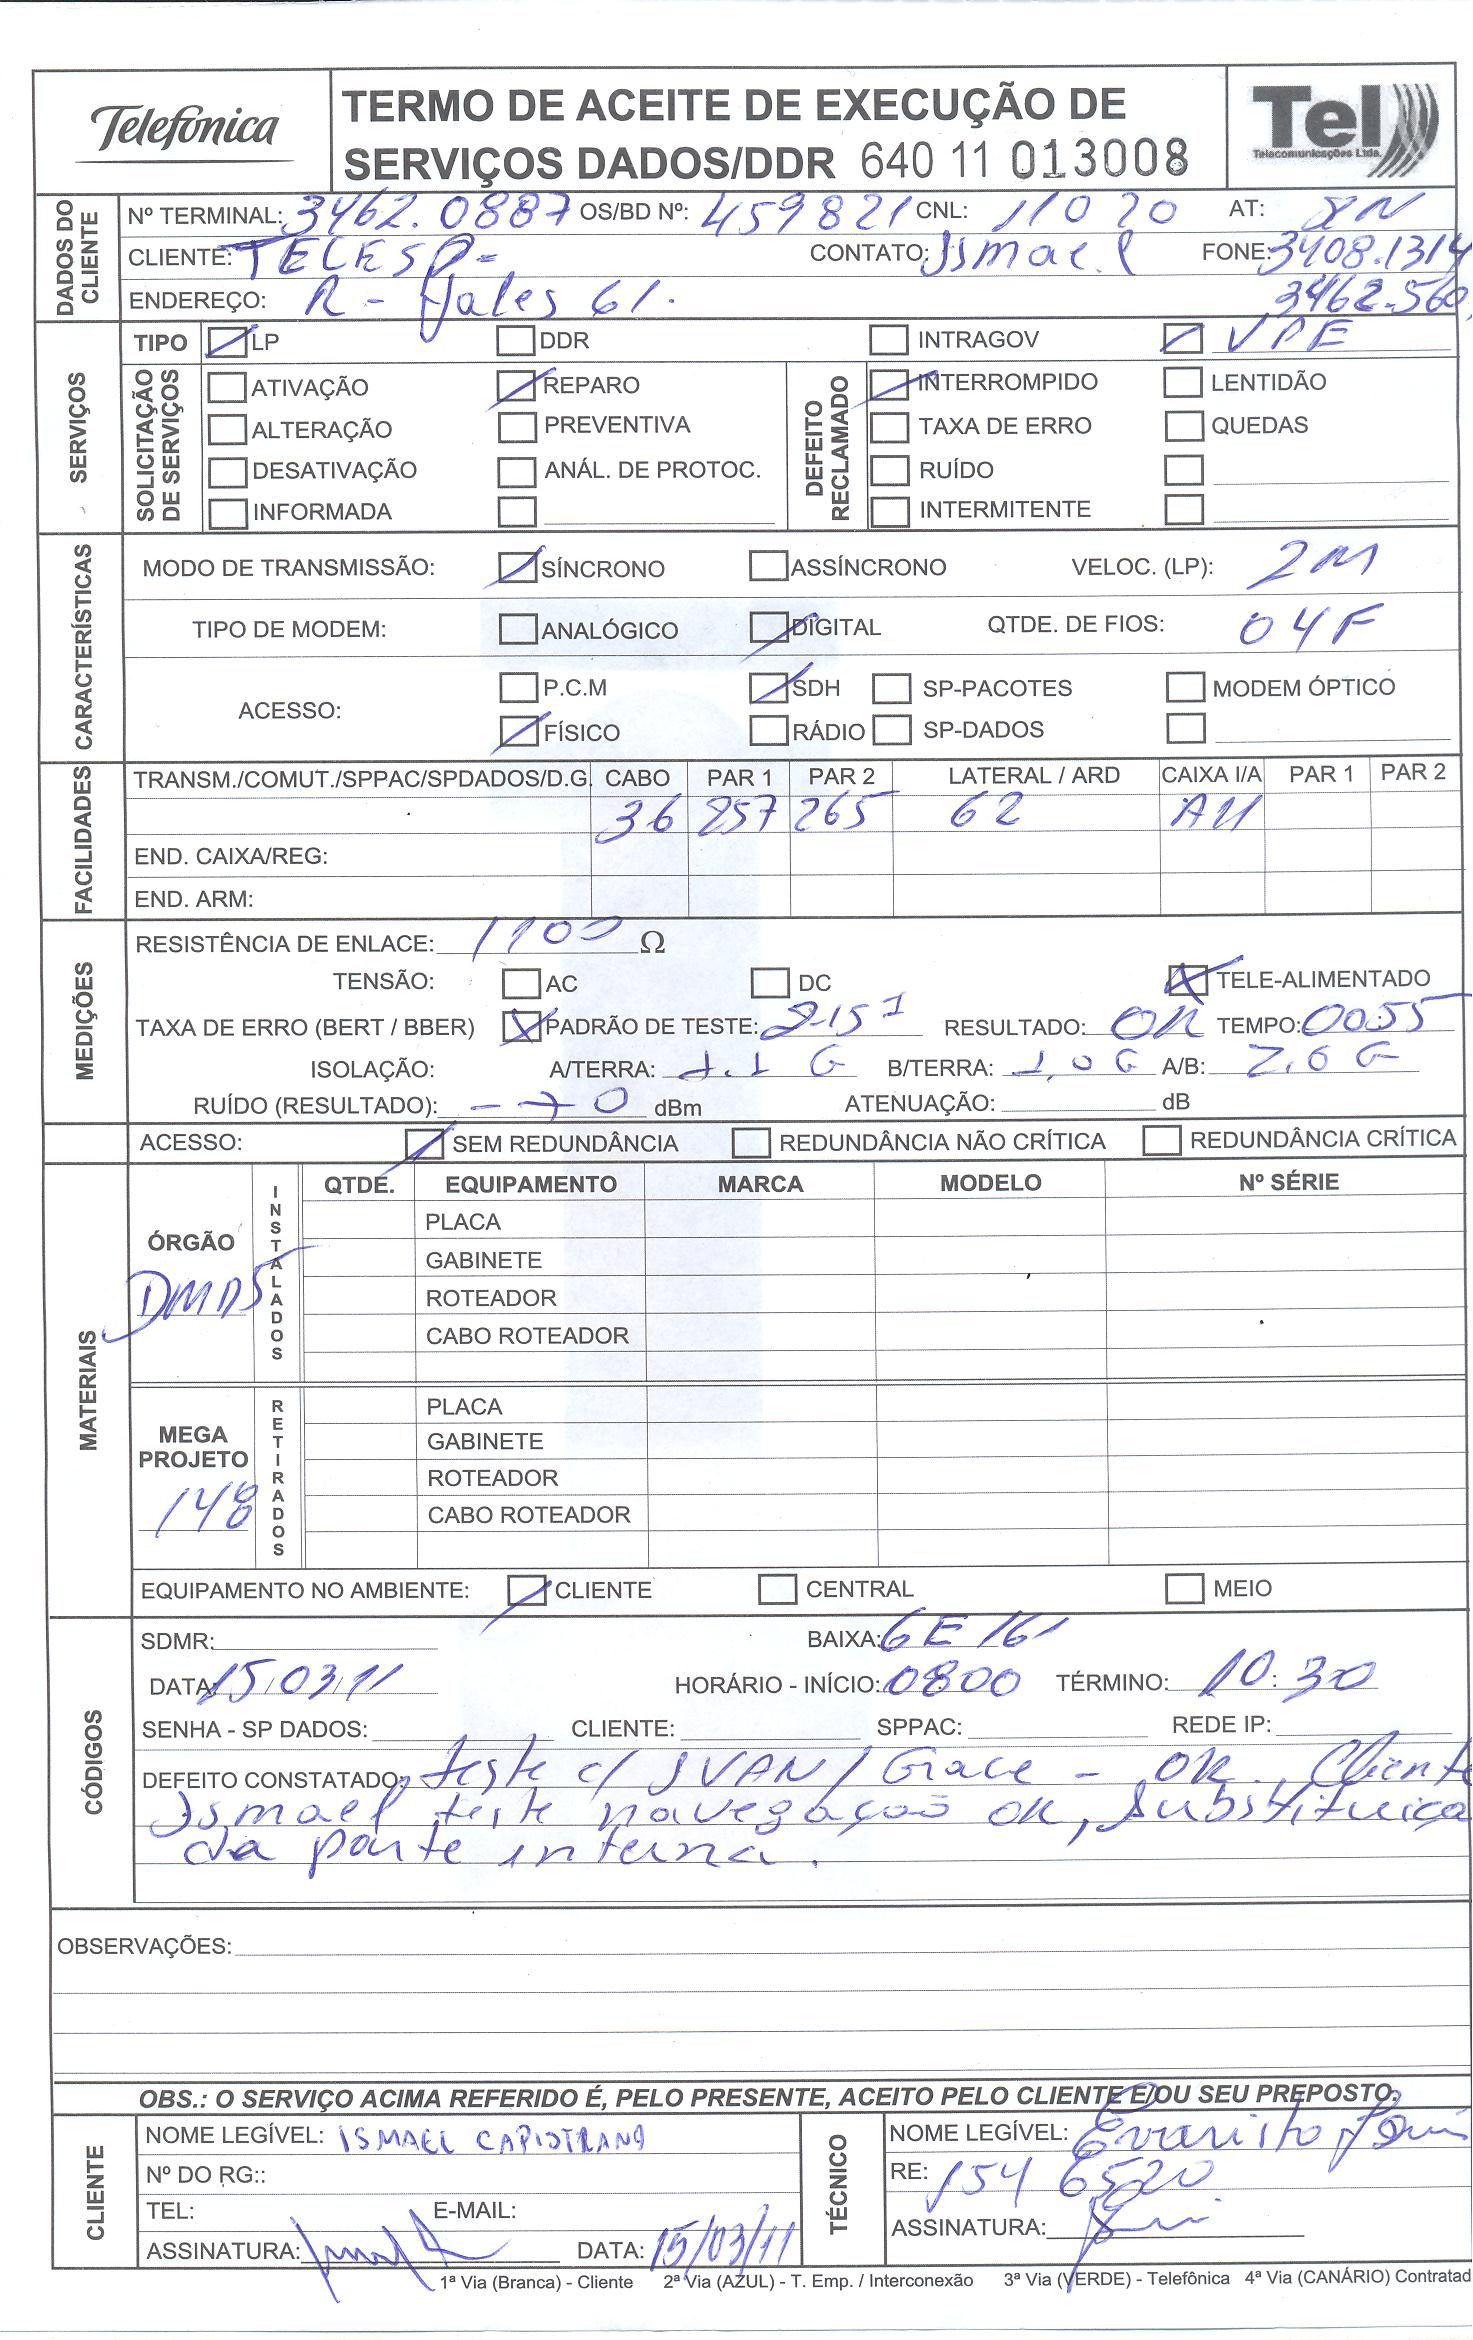 Telefónica
TERMO DE ACEITE DE EXECUÇÃO DE
SERVIÇOS DADOS/DDR 640 11 013008
Tel
Telecomunicações Ltda.
DADOS DO CLIENTE
Nº TERMINAL: 3462.0887 OS/BD Nº: 459821 CNL: 11020 AT: 8N
CLIENTE: TELESP - CONTATO: Ismael FONE: 3408.1314
ENDEREÇO: R - Jales 61. 3462.560
SERVIÇOS
TIPO LP DDR INTRAGOV VPE
SOLICITAÇÃO DE SERVIÇOS
DEFEITO RECLAMADO
ATIVAÇÃO REPARO INTERROMPIDO LENTIDÃO
ALTERAÇÃO PREVENTIVA TAXA DE ERRO QUEDAS
DESATIVAÇÃO ANÁL. DE PROTOC. RUÍDO
INFORMADA INTERMITENTE
CARACTERÍSTICAS
MODO DE TRANSMISSÃO: SÍNCRONO ASSÍNCRONO VELOC. (LP): 2M
TIPO DE MODEM: ANALÓGICO DIGITAL QTDE. DE FIOS: 04F
ACESSO: P.C.M SDH SP-PACOTES MODEM ÓPTICO
FÍSICO RÁDIO SP-DADOS
FACILIDADES
TRANSM./COMUT./SPPAC/SPDADOS/D.G. CABO PAR 1 PAR 2 LATERAL / ARD CAIXA I/A PAR 1 PAR 2
36 257 265 62 A11
END. CAIXA/REG:
END. ARM:
MEDIÇÕES
RESISTÊNCIA DE ENLACE: 1100 Ω
TENSÃO: AC DC TELE-ALIMENTADO
TAXA DE ERRO (BERT / BBER) PADRÃO DE TESTE: 2-15 1 RESULTADO: OK TEMPO: 00:55
ISOLAÇÃO: A/TERRA: 1.1 G B/TERRA: 1,0 G A/B: 2.6 G
RUÍDO (RESULTADO): - 70 dBm ATENUAÇÃO: dB
ACESSO: SEM REDUNDÂNCIA REDUNDÂNCIA NÃO CRÍTICA REDUNDÂNCIA CRÍTICA
MATERIAIS
INSTALADOS QTDE. EQUIPAMENTO MARCA MODELO Nº SÉRIE
ÓRGÃO
PLACA
GABINETE
ROTEADOR
CABO ROTEADOR
RETIRADOS
MEGA PROJETO
148
PLACA
GABINETE
ROTEADOR
CABO ROTEADOR
EQUIPAMENTO NO AMBIENTE: CLIENTE CENTRAL MEIO
CÓDIGOS
SDMR: BAIXA: GE 161
DATA: 15/03/11 HORÁRIO - INÍCIO: 0800 TÉRMINO: 10:30
SENHA - SP DADOS: CLIENTE: SPPAC: REDE IP:
DEFEITO CONSTATADO: teste c/ IVAN / Grace - OK. Cliente
Ismael teste navegação OK, substituiça
da parte interna.
OBSERVAÇÕES:
OBS.: O SERVIÇO ACIMA REFERIDO É, PELO PRESENTE, ACEITO PELO CLIENTE E/OU SEU PREPOSTO.
CLIENTE
NOME LEGÍVEL: ISMAEL CAPISTRANO
Nº DO RG::
TEL: E-MAIL:
ASSINATURA: DATA: 15/03/11
TÉCNICO
NOME LEGÍVEL: Evaristo
RE: 154 6520
ASSINATURA:
1ª Via (Branca) - Cliente 2ª Via (AZUL) - T. Emp. / Interconexão 3ª Via (VERDE) - Telefônica 4ª Via (CANÁRIO) Contratad